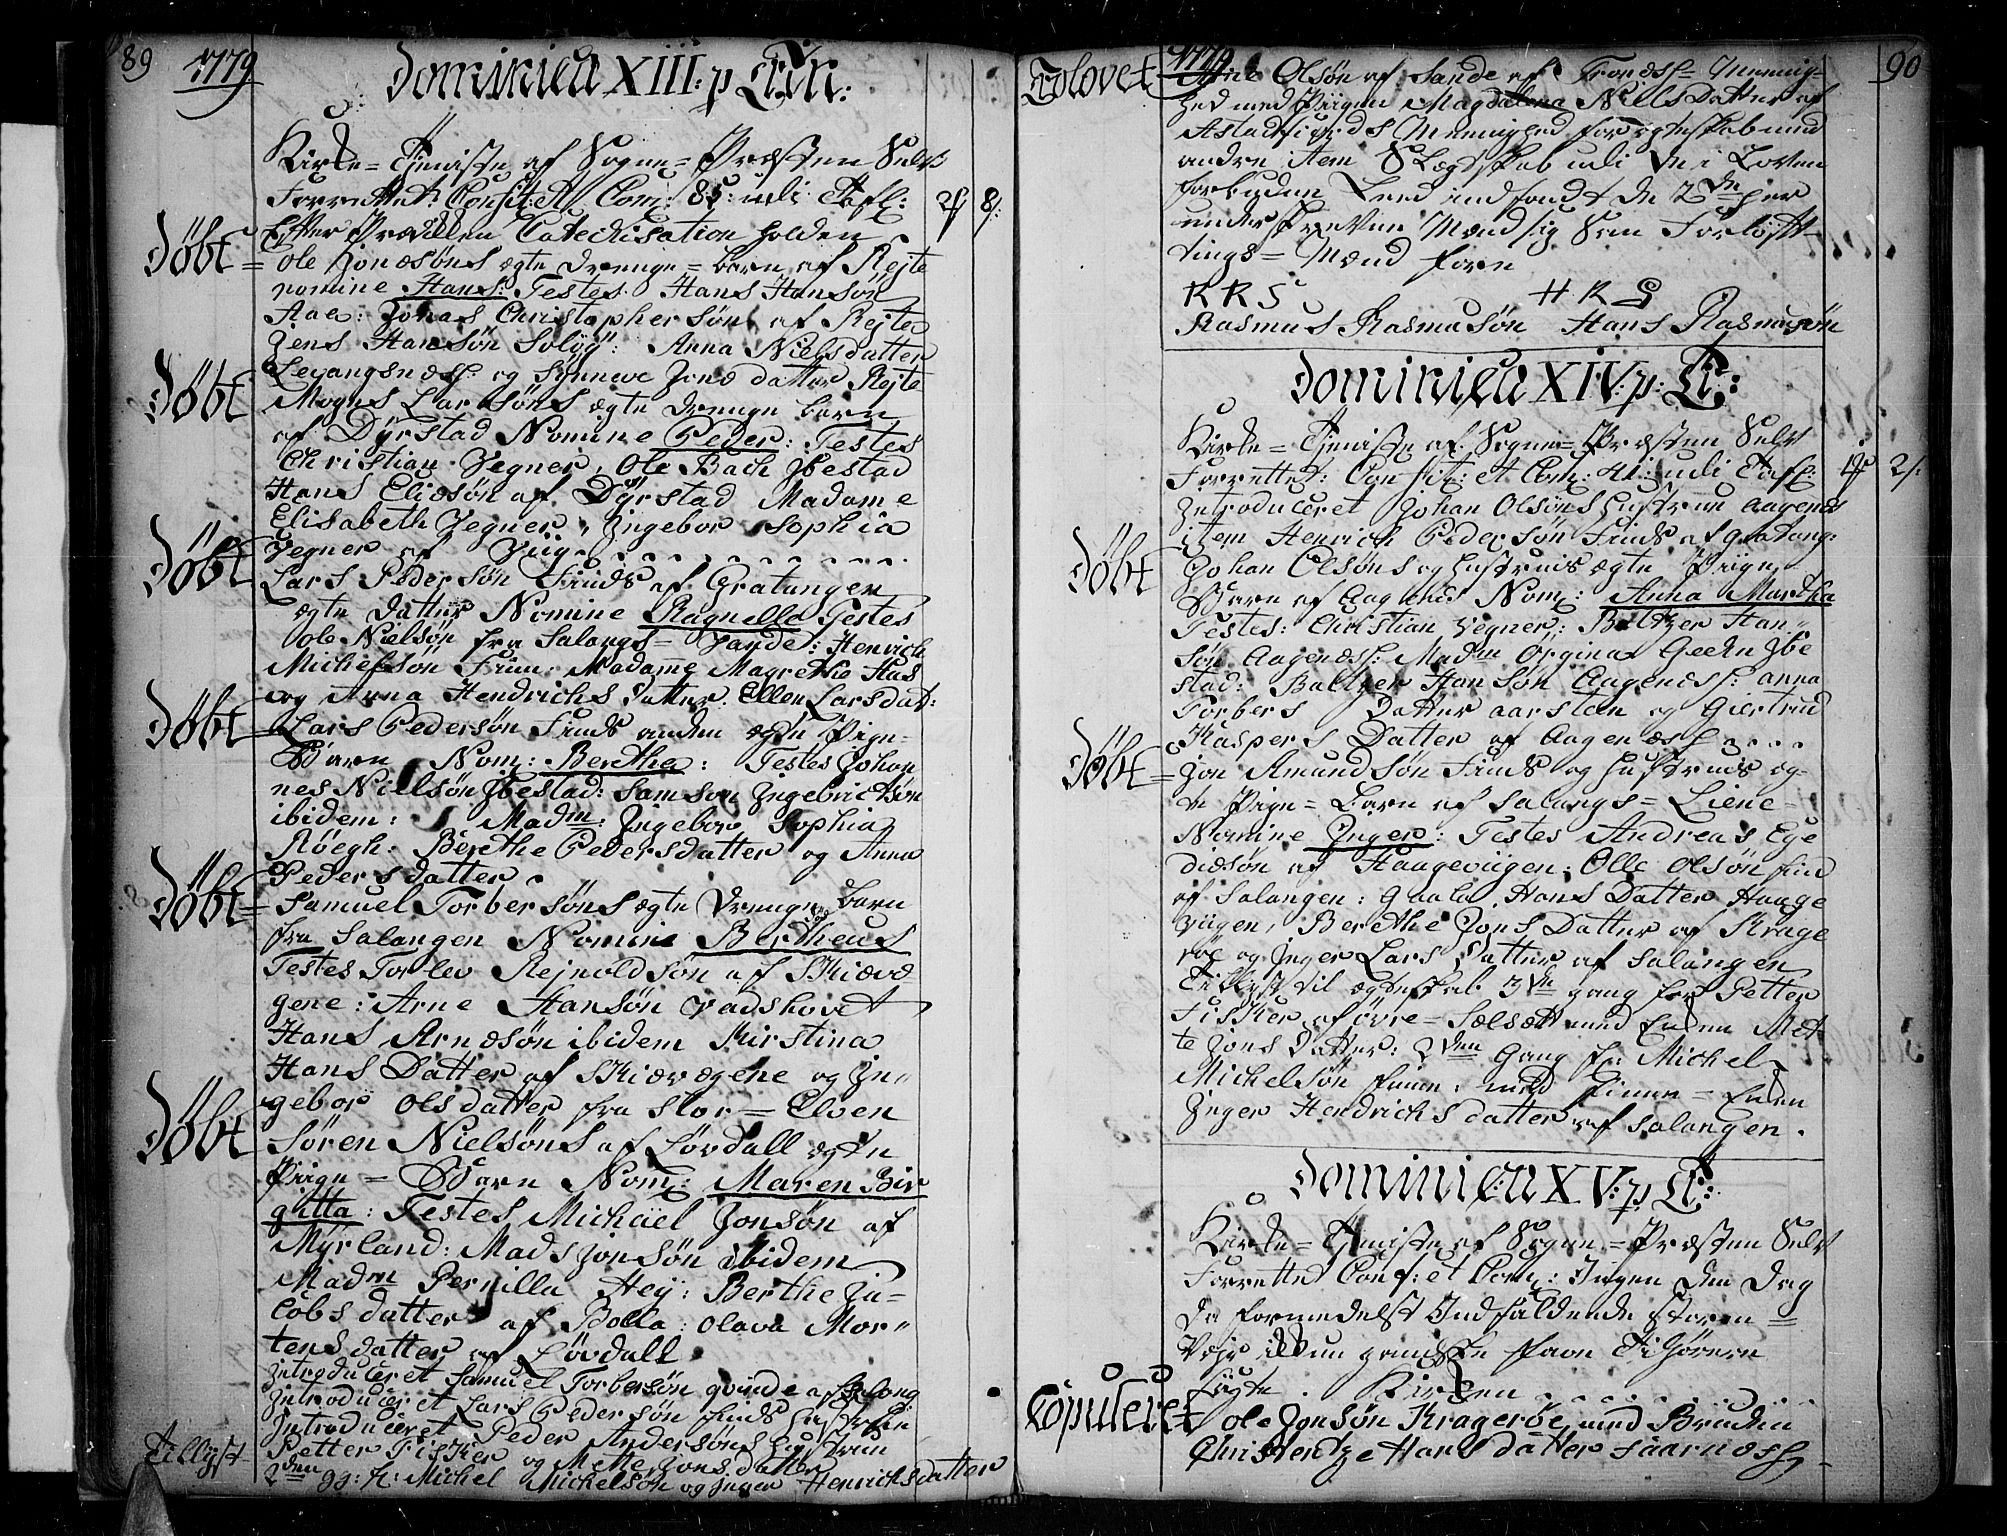 89 1779 Dominica XIII: p Trin:
Kirke = Tjeniste af Sogne = Præsten Selv
Forrettet: Confit: et Com: 85: udi Tafl: 2 8
Efter Prædiken Catechisation holden
Døbt = Ole Jonæsøns ægte Drenge = barn af Rejte
nomine Hans: Testes. Hans Hansøn
Aae: Jonas Christophersøn af Rejten
Jens Hansøn Soløÿ: Anna Nielsdatter
Levangsnæss: og Synneve Jonæ datter Rejte
Døbt Mogns Larsøns ægte drenge barn
af Dÿrstad Nomine Peder: Testes
Christian Vegner, Ole Bach Jbestad
Hans Eliæsøn af Dÿrstad Madame
Elisabeth Vegner, Jngebor Sophia
Vegner af Viig
Døbt Lars Pedersøn Finds af Gratangen
ægte datter Nomine Ragnella Testes
Ole Nielsøn fra Salangs = Vande: Henrich
Michelsøn Finn: Madame Magrethe Has
og Anna Hendrichs Datter. Ellen Larsdat:
Døbt Lars Pedersøn Finds anden ægte Pige-
Barn Nom: Berthe: Testes Johan
nes Nielsøn Jbestad: Samson Jngebrictsøn
ibidem: Madm: Jngebor Sophia
Röegh: Berthe Pedersdatter og Anna
Peders datter
Døbt = Samuel Torbersøns ægte Drenge barn
fra Salangen Nomine Bertheus
Testes Torlev Rejnoldsøn af Skiævæ
gene: Arne Hansøn Vadshovet
Hans Arnæsøn ibidem Kirstina
Hans Datter af Skiævægene og Jn
gebor Olsdatter fra Stor = Elven
Døbt Søren Nielsøns af Løvdall ægte
Piige = Barn Nom: Maren Bir
gitta: Testes Michäel Jonsøn af
Mÿrland: Mads Jonsøn ibidem
Madm Pernilla Heÿ: Berthe Ja=
cobs datter af Bolla: Olava Mor
tens datter af Løvdall
Introduceret Samuel Torbersøn qvinde af Salang
Introduceret Lars Pedersøn Finds Hustrue
Introduceret Peder Andersøns Hustrue
Tillÿst Petter Fisker og Mette Jons datter
2den gg: f: Michel Michelsøn og Jnger Henrichsdatter
Trolovet 1779 Arne Olsøn af Sande af Trondss= Menig- 90
hed med Piigen Magdalena Niels Datter af
Astafiords Menighed for ægteskab med
andre item Slægtskab udi de i Loven
forbuden Leed indfandt de 2de her
underskrevne Mænd sig Som Forløft-
nings = Mænd forn
R R S H R S
Rasmus Rasmusøn Hans Rasmusøn
Dominica XIV: p: Tr:
Kirke = Tjeniste af Sogne = Præsten Selv
Forrettet: Confit: et Com: 41: udi Tafl: 1 2
Introduceret Johan Olsøns Hustrue Aagenæs
item Henrich Pedersøn Finds af Gratang:
Døbt Johan Olsøns og Hustrues ægte Piige
Barn af Aagenæs Nom: Anna Martha
Testes: Christian Vegner: Baltzer Han
søn Aagenæss: Madm Orgina Geeln Jbe
stad: Baltzer Hansøn Aagenæss: Anna
Torbers Datter Aarsteen og Giertrud
Kaspers Datter af Aagenæss
Døbt = Jon Amundsøn Finds og Hustrues æg-
te Pige = Barn af Salangs = Liene
Nomine Jnger: Testes Andreas Ege
diæsøn af Haageviigen: Olle Olsøn find
af Salangen: Gaala Hans Datter Haage
viigen, Berethe Jons Datter af Krage
röe og Jnger Lars Datter af Salangen
Tillÿst til ægteskab 3de gang for Petter
Fisker af øvre = Salsæt med Enken Met
te Jons Datter: 2den Gang for Michel
Michelsøn Finn: med Finne = Enken
Jnger Hendrichs datter af Salangen.
Dominica XV: p Tr:
Kirke = Tjeniste af Sogne = Præsten Selv
Forrettet Conf: et Com: Ingen den dag
da formedelst Indfaldende Storm =
Vejr ikkun ganske faae Tilhørere
søgte Kirken
Copuleret Ole Jonsøn Kragerøe med Bruden
Christentze Hans datter Saarnæss